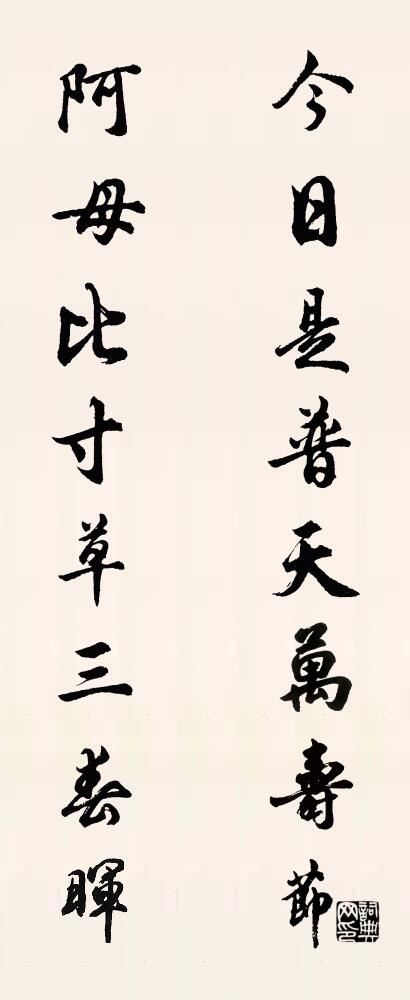 今日是普天萬壽節
阿母比寸草三春暉
詞典網印